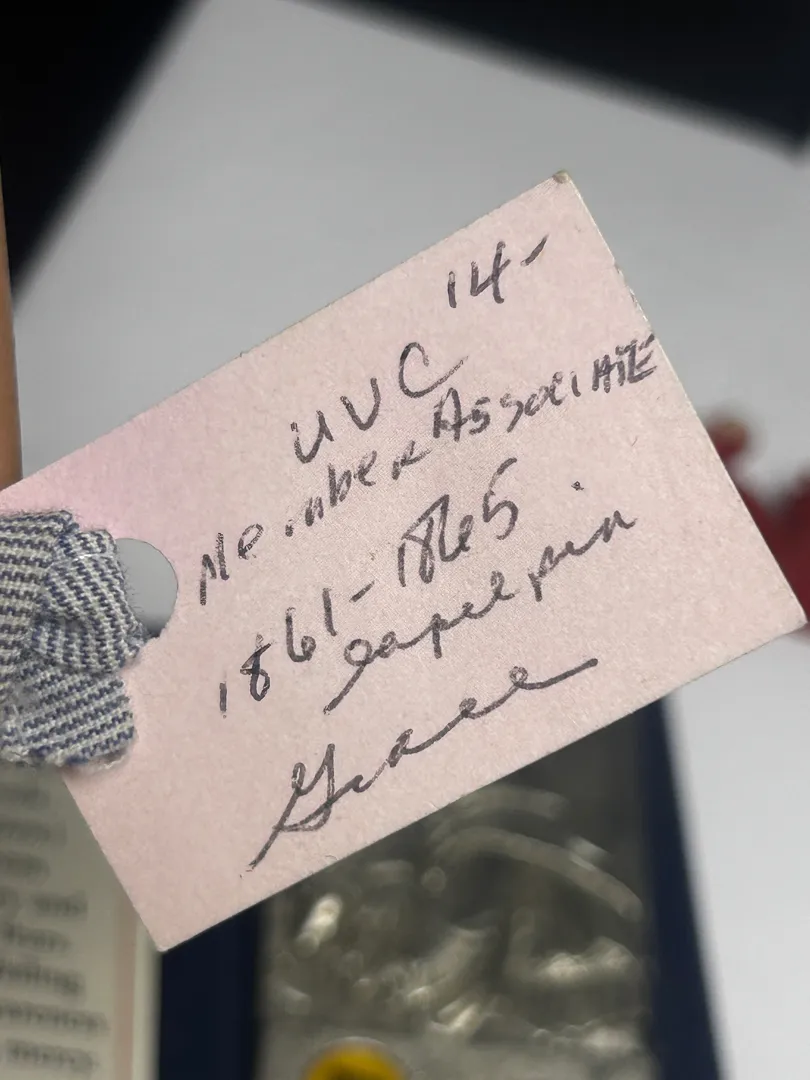 14-
UVC
Member Associate
1861-1865
lapel pin
Grace